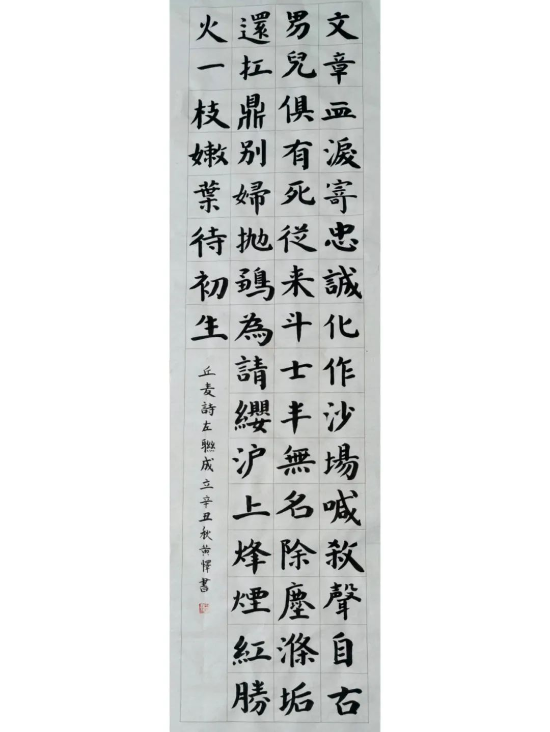 文章血淚寄忠誠化作沙場喊殺聲自古
男兒俱有死從来斗士半無名除塵滌垢
還扛鼎別婦抛鶵為請纓沪上烽煙紅勝
火一枝嫩葉待初生
丘麦詩左聯成立辛丑秋黄懌書